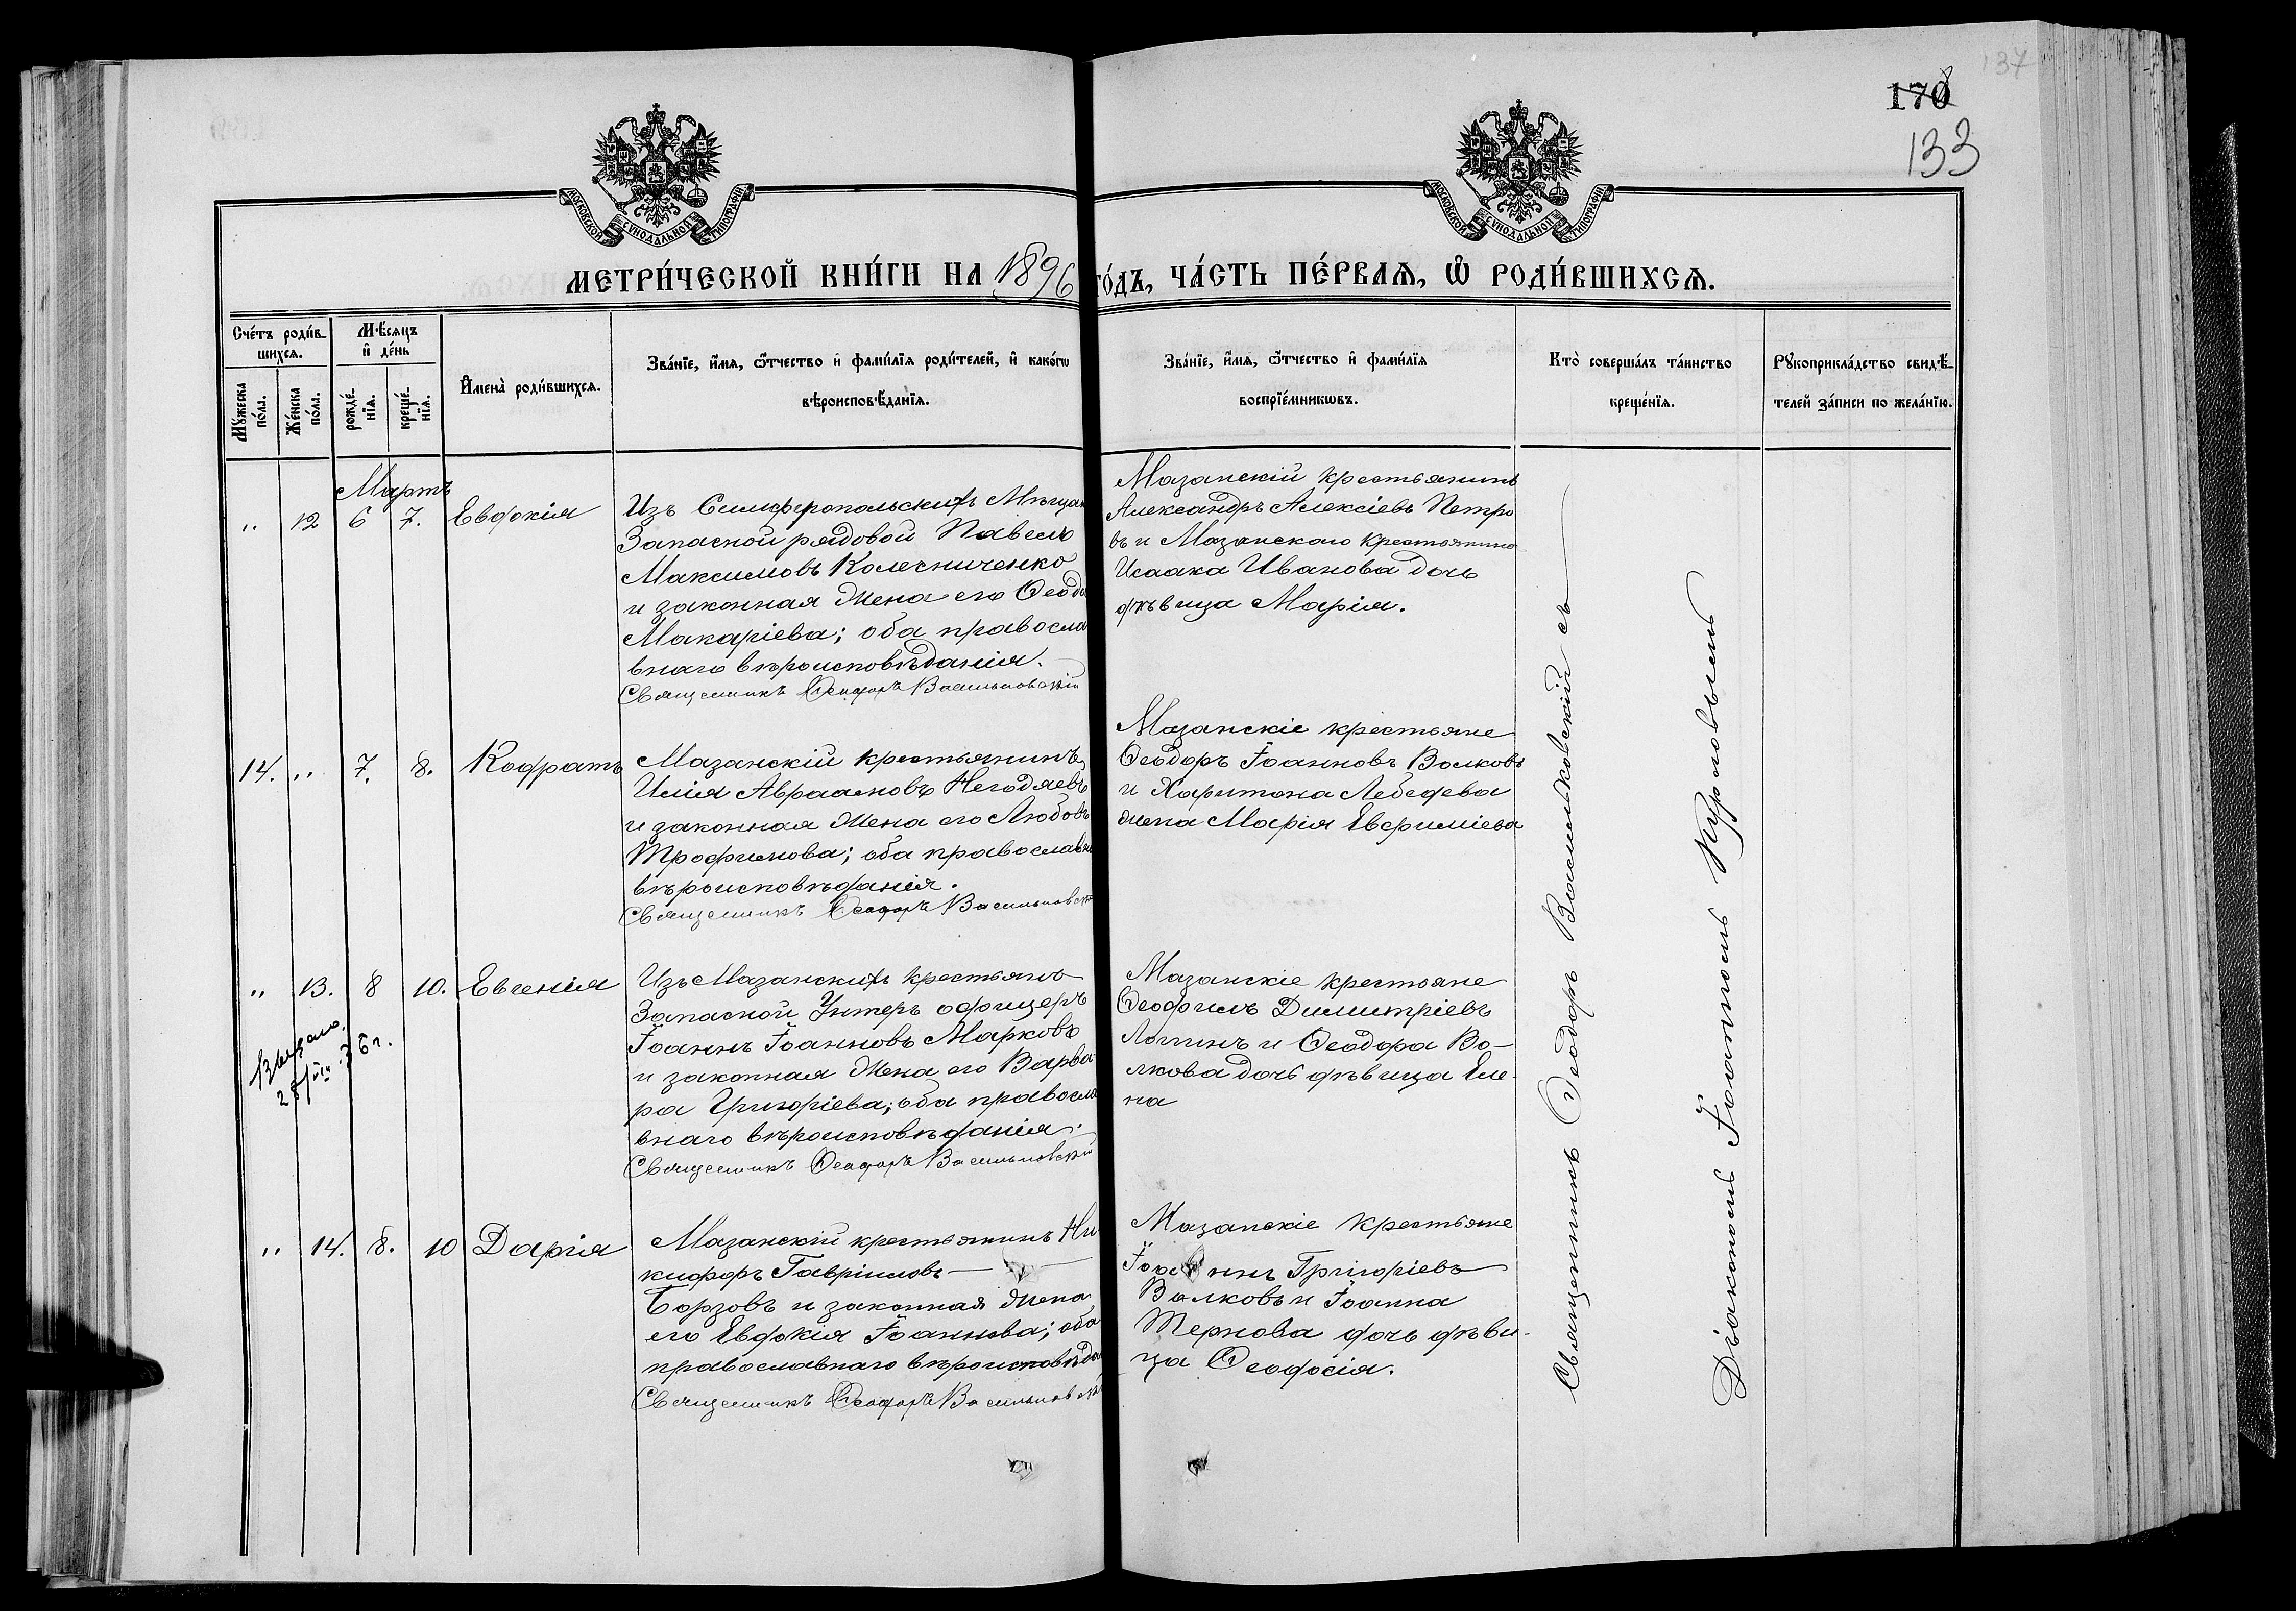 137
170
133
МОСКОВСКОЙ СѴНОДАЛЬНОЙ ТИПОГРАФІИ
МОСКОВСКОЙ СѴНОДАЛЬНОЙ ТИПОГРАФІИ
МЕТРИ́ЧЕСКОЙ КНИ́ГИ НА 1896 ГО́ДЪ, ЧА́СТЬ ПЕ́РВАѦ, Ѡ҆ РОДИ́ВШИХСѦ.
Сче́тъ роди́в-
шихсѧ.
Мꙋ́жеска
по́ла.
Же́нска
по́ла.
Мѣ́сѧцъ
и҆ де́нь
рожде́-
нїѧ.
креще́-
нїѧ.
И҆мена̀ роди́вшихсѧ.
Зва́нїе, и҆́мѧ, ѻ҆́тчество и҆ фами́лїѧ роди́телей, и҆ како́гѡ
вѣроисповѣ́данїѧ.
Зва́нїе, и҆́мѧ, ѻ҆́тчество и҆ фами́лїѧ
воспрїе́мникѡвъ.
Кто̀ соверша́лъ та́инство
креще́нїѧ.
Рꙋкоприкла́дство свидѣ́-
телей за́писи по жела́нїю.
Мартъ
„ 12 6 7. Евдокія
Изъ Симферопольскихъ Мѣщан
Запасной рядовой Павелъ
Максимовъ Колесниченко
и законная жена его Ѳеодо
Макаріева; оба правосла
внаго вѣроисповѣданія.
Священникъ Ѳеодоръ Васильковскій
Мазанскій крестьянинъ
Александръ Алексіевъ Петро
въ и Мазанскаго крестьянина
Исаака Иванова дочь
дѣвица Марія.
14. „ 7. 8. Кодратъ
Мазанскій крестьянинъ
Илія Авраамовъ Негодяевъ
и законная жена его Любовь
Трофимова; оба православн
вѣроисповѣданія.
Священникъ Ѳеодоръ Васильковскі
Мазанскіе крестьяне
Ѳеодоръ Іоанновъ Волковъ
и Харитона Лебедева
жена Марія Евфиміева
„ 13. 8 10. Евгенія
Изъ Мазанскихъ крестьянъ
Запасной Унтеръ офицеръ
Іоаннъ Іоанновъ Марковъ
и законная жена его Варва-
ра Григоріева; оба правосла
внаго вѣроисповѣданія.
Священникъ Ѳеодоръ Васильковскій
Мазанскіе крестьяне
Ѳеофилъ Димитріевъ
и Ѳеодора Во-
лкова дочь дѣвица Еле-
на
„ 14. 8. 10 Дарія
Мазанскій крестьянинъ Ни-
кифоръ Гавріиловъ
Борзовъ и законная жена
его Евдокія Іоаннова; оба
православнаго вѣроисповѣда
Священникъ Ѳеодоръ Васильковскі
Мазанскіе крестьяне
Іоаннъ Григоріевъ
Волковъ и Іоанна
Тернова дочь дѣви-
ца Ѳеодосія.
Священникъ Ѳеодоръ Васильковскій съ
Діакономъ Іоанномъ Курловымъ